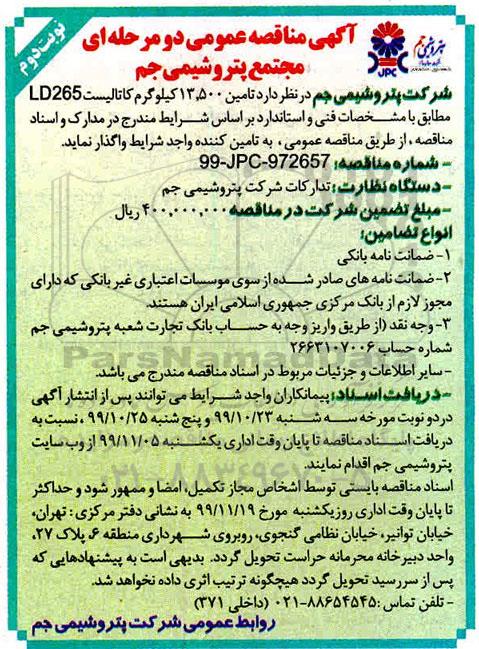 نوبت دوم
آگهی مناقصه عمومی دو مرحله ای
مجتمع پتروشیمی جم
پتروشیمی جم
JPC
شرکت پتروشیمی جم در نظر دارد تامین ۱۳,۵۰۰ کیلوگرم کاتالیست LD265
مطابق با مشخصات فنی و استاندارد بر اساس شرایط مندرج در مدارک و اسناد
مناقصه ، از طریق مناقصه عمومی ، به تامین کننده واجد شرایط واگذار نماید.
- شماره مناقصه: 99-JPC-972657
- دستگاه نظارت: تدارکات شرکت پتروشیمی جم
- مبلغ تضمین شرکت در مناقصه ۴۰۰,۰۰۰,۰۰۰ ریال
انواع تضامین:
۱- ضمانت نامه بانکی
۲- ضمانت نامه های صادر شده از سوی موسسات اعتباری غیر بانکی که دارای
مجوز لازم از بانک مرکزی جمهوری اسلامی ایران هستند.
۳- وجه نقد (از طریق واریز وجه به حساب بانک تجارت شعبه پتروشیمی جم
شماره حساب ۲۶۶۳۱۰۷۰۰۶
- سایر اطلاعات و جزئیات مربوط در اسناد مناقصه مندرج می باشد.
- دریافت اسناد: پیمانکاران واجد شرایط می توانند پس از انتشار آگهی
در دو نوبت مورخه سه شنبه ۹۹/۱۰/۲۳ و پنج شنبه ۹۹/۱۰/۲۵ ، نسبت به
دریافت اسناد مناقصه تا پایان وقت اداری یکشنبه ۹۹/۱۱/۰۵ از وب سایت
پتروشیمی جم اقدام نمایند.
اسناد مناقصه بایستی توسط اشخاص مجاز تکمیل، امضا و ممهور شود و حداکثر
تا پایان وقت اداری روز یکشنبه مورخ ۹۹/۱۱/۱۹ به نشانی دفتر مرکزی : تهران،
خیابان توانیر، خیابان نظامی گنجوی، روبروی شهرداری منطقه ۶، پلاک ۲۷،
واحد دبیرخانه محرمانه حراست تحویل گردد. بدیهی است به پیشنهادهایی که
پس از سررسید تحویل گردد هیچگونه ترتیب اثری داده نخواهد شد.
- تلفن تماس :۸۸۶۵۴۵۴۵-۰۲۱ (داخلی ۳۷۱)
روابط عمومی شرکت پتروشیمی جم